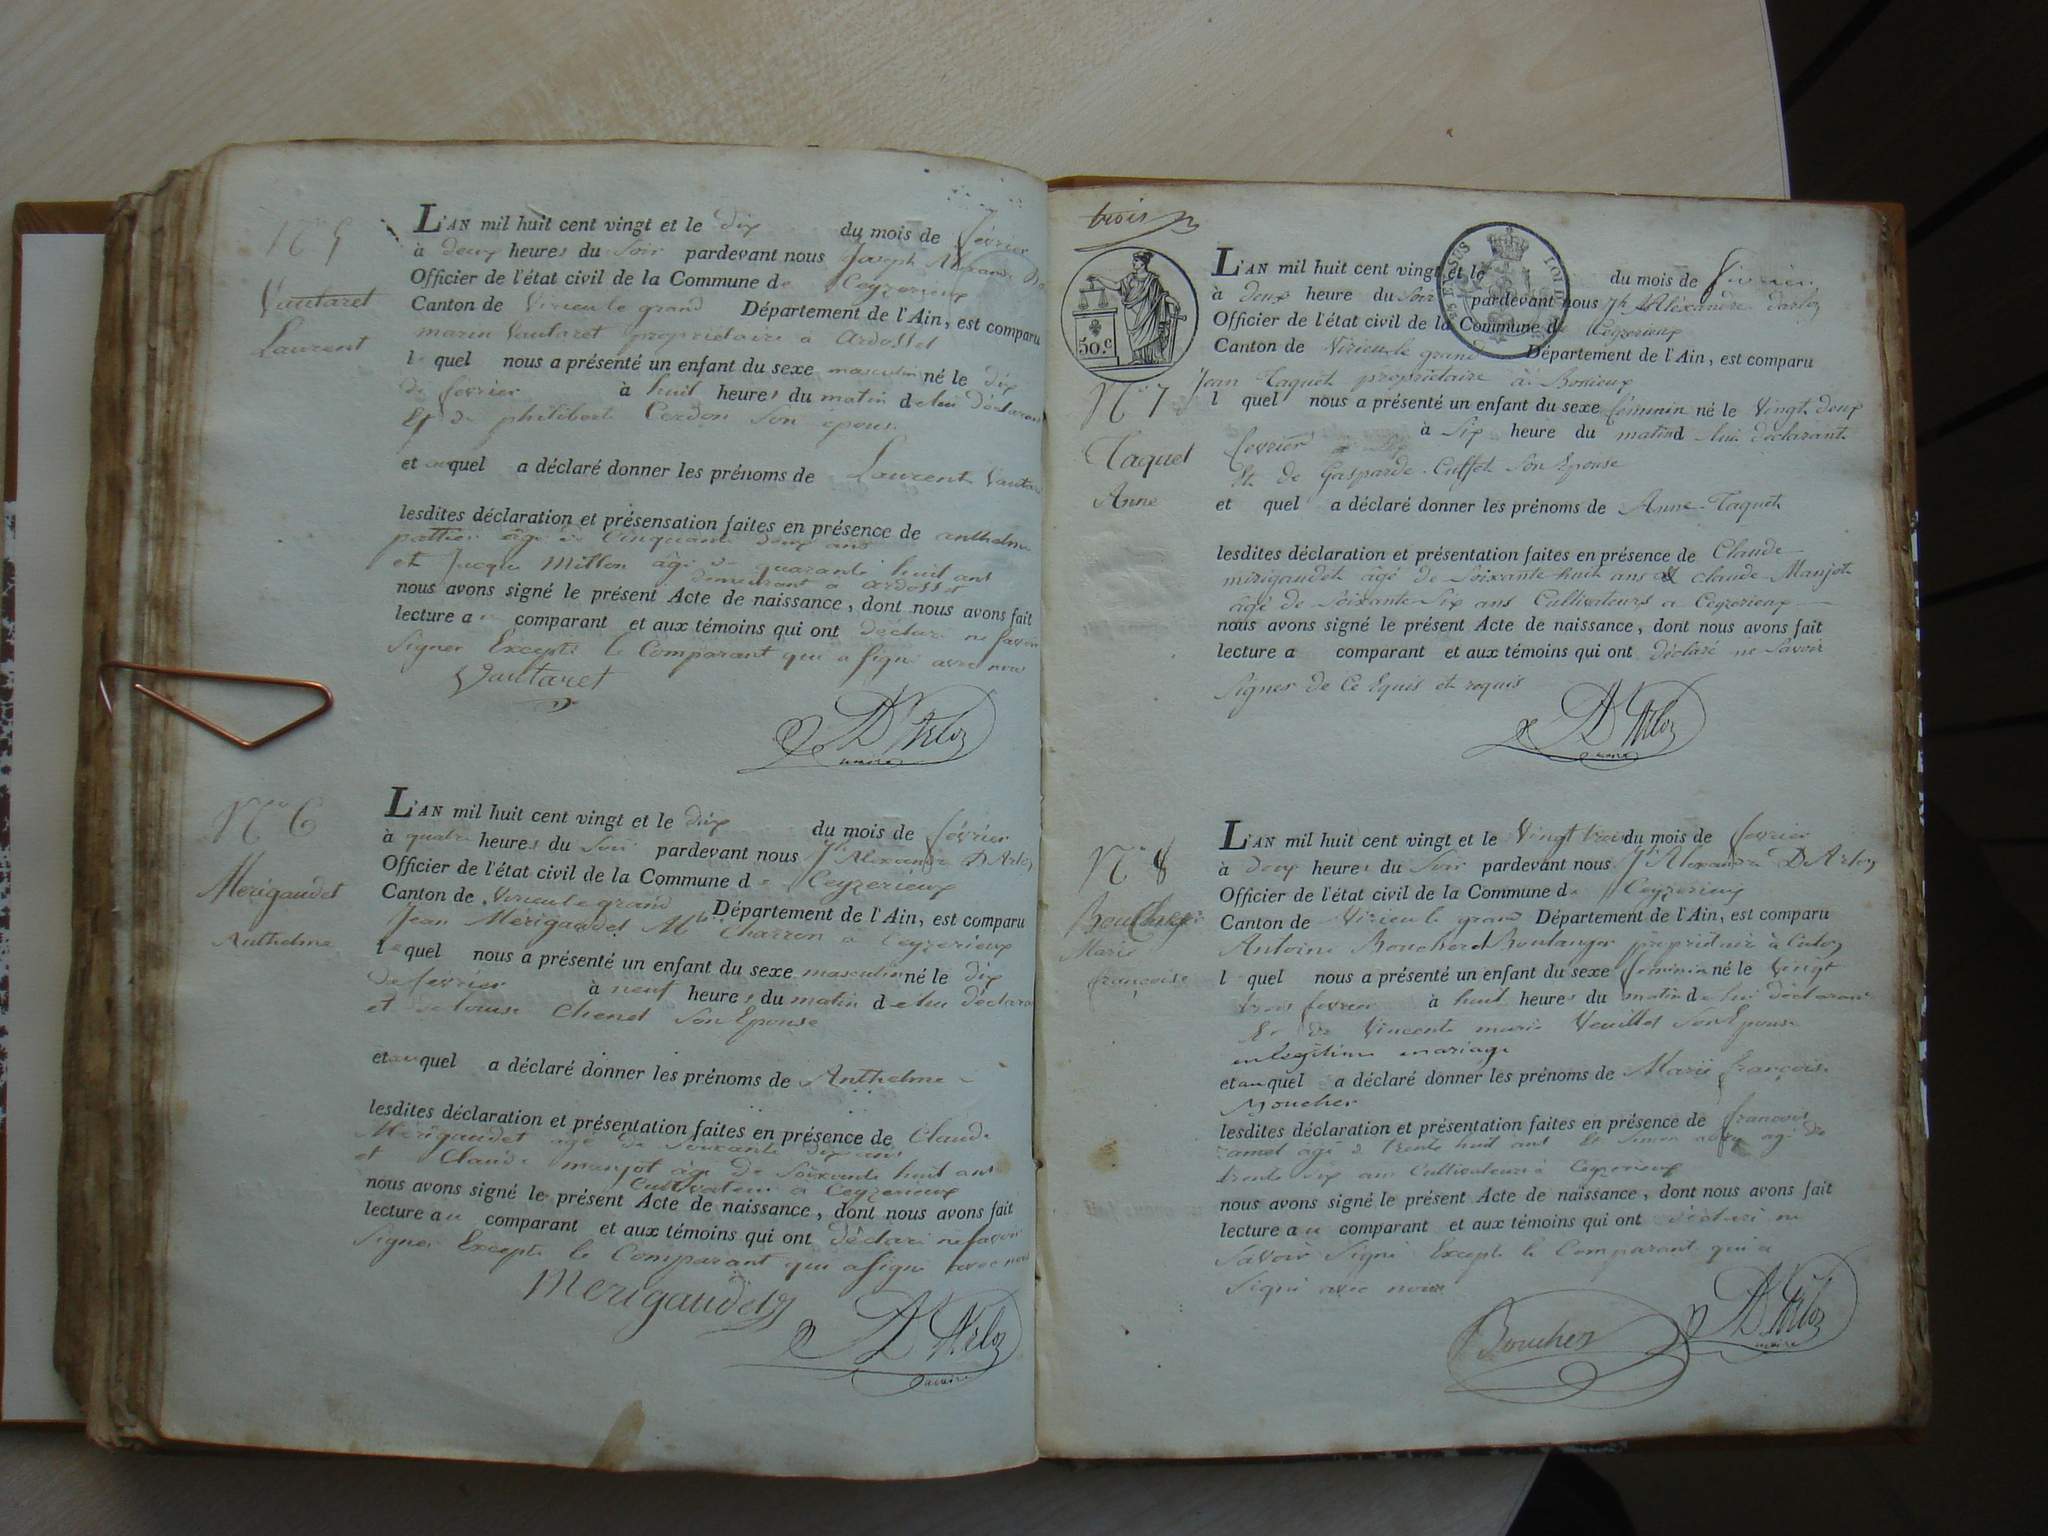 N° 5
Vautaret
Laurent
L'AN mil huit cent vingt et le dix du mois de février
à deux heures du soir pardevant nous Joseph Alexandre
Officier de l'état civil de la Commune de Ceyzerieux
Canton de Virieu le grand Département de l'Ain, est comparu
marin Vautaret propriétaire a Ardosset
lequel nous a présenté un enfant du sexe masculin né le dix
de fevrier à huit heures du matin de lui déclarant
Et de philiberte Cerdon Son épouse
et auquel a déclaré donner les prénoms de Laurent Vautaret
lesdites déclaration et présensation faites en présence de anthelme
pattier âgé de Cinquante deux ans
et Jacque Millon âgé de quarante huit ans
demeurant a ardosset
nous avons signé le présent Acte de naissance, dont nous avons fait
lecture au comparant et aux témoins qui ont déclaré ne savoir
Signer Excepté le Comparant qui a signé avec nous
Vautaret
D'Arloz
maire
N° 6
Merigaudet
Anthelme
L'AN mil huit cent vingt et le dix du mois de février
à quatre heures du soir pardevant nous Jh Alexandre D'Arloz
Officier de l'état civil de la Commune de Ceyzerieux
Canton de Virieu le grand Département de l'Ain, est comparu
Jean Mérigaudet Charron à Ceyzerieux
lequel nous a présenté un enfant du sexe masculin né le dix
de fevrier à neuf heures du matin de lui déclarant
et de louise Chenet Son Epouse
et auquel a déclaré donner les prénoms de Anthelme
lesdites déclaration et présentation faites en présence de Claude
Mérigaudet agé de soixante dix ans
et Claude manjot âgé de Soixante huit ans
Cultivateurs a Ceyzerieux
nous avons signé le présent Acte de naissance, dont nous avons fait
lecture au comparant et aux témoins qui ont déclaré ne savoir
Signer Excepté le Comparant qui a signé avec nous
Merigaudet
D'Arloz
maire
trois
50.c
N° 7
Taquet
Anne
L'AN mil huit cent vingt et le du mois de fevrier
à deux heure du soir pardevant nous Jh Alexandre d'arloz
Officier de l'état civil de la Commune de Ceyzerieux
Canton de Virieu le grand Département de l'Ain, est comparu
Jean Taquet propriétaire à
lquel nous a présenté un enfant du sexe féminin né le Vingt deux
fevrier à Six heure du matin d lui déclarant
Et de Gasparde Cuffet Son Epouse
et quel a déclaré donner les prénoms de Anne Taquet
lesdites déclaration et présentation faites en présence de Claude
mérigaudet âgé de Soixante huit ans et Claude Manjot
âgé de Soixante Six ans Cultivateurs a Ceyzerieux
nous avons signé le présent Acte de naissance, dont nous avons fait
lecture a comparant et aux témoins qui ont déclaré ne savoir
Signer de Ce Equis et requis
D'Arloz
maire
N° 8
Marie
françoise
L'AN mil huit cent vingt et le Vingt trois du mois de fevrier
à deux heures du Soir pardevant nous Jh Alexandre D'Arloz
Officier de l'état civil de la Commune de Ceyzerieux
Canton de Virieu le grand Département de l'Ain, est comparu
Antoine Boucherd Boulanger propriétaire à Culoz
lquel nous a présenté un enfant du sexe féminin né le Vingt
trois fevrier à huit heures du matin de lui déclarant
Et de Vincente marie Veuillet Son Epouse
en legitime mariage
et auquel a déclaré donner les prénoms de Marie françoise
Boucher
lesdites déclaration et présentation faites en présence de francois
ramel âgé de trente huit ans Et Simon agé de
trente six ans Cultivateurs à Ceyzerieux
nous avons signé le présent Acte de naissance, dont nous avons fait
lecture au comparant et aux témoins qui ont déclaré ne
Savoir Signé Excepté le Comparant qui a
Signé avec nous
Boucher
D'Arloz
maire